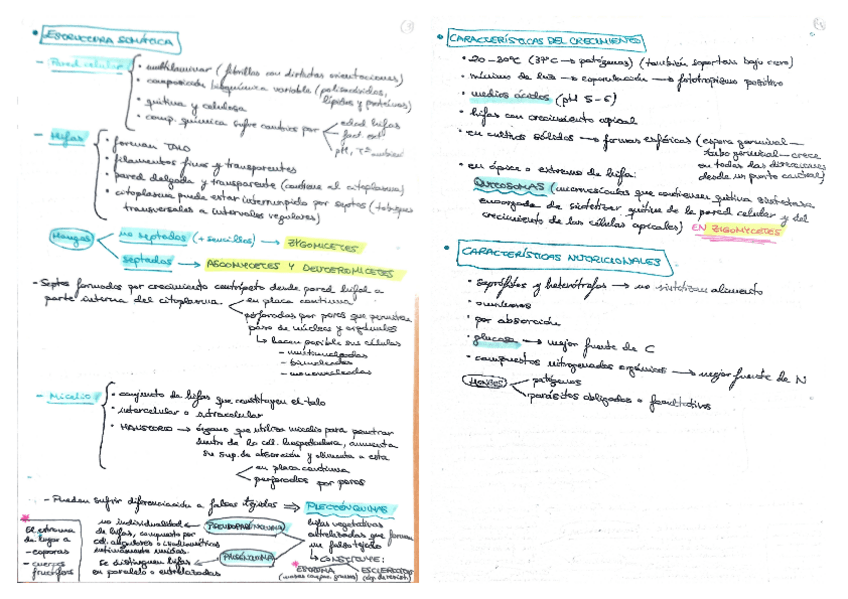 • ESTRUCTURA SOMÁTICA
- Pared celular
• multilaminar (fibrillas con distintas orientaciones)
• composición bioquímica variable (polisacáridos,
lípidos y proteínas)
• quitina y celulosa
• comp. química sufre cambios por
edad hifas
fact. ext
pH, Tª ambient
- Hifas
• forman TALO
• filamentos finos y transparentes
• pared delgada y transparente (contiene al citoplasma)
• citoplasma puede estar interrumpido por septos (tabiques
transversales a intervalos regulares)
Hongos
no septados (+ sencillos) → ZYGOMICETES
septados → ASCOMYCETES Y DEUTEROMICETES
- Septos formados por crecimiento centrípeto desde pared hifal a
parte interna del citoplasma.
en placa continua
perforadas por poros que permiten
paso de núcleos y orgánulos
↳ hacen posible sus células
- multinucleadas
- binucleadas
- mononucleadas
- Micelio
• conjunto de hifas que constituyen el talo
• intercelular o intracelular
• HAUSTORIO → órgano que utiliza micelio para penetrar
dentro de la cél. hospedadora, aumenta
su sup. de absorción y alimenta a esta
en placa continua
perforados por poros
- Pueden sufrir diferenciación a falsos tejidos ⇒ PLECTÉNQUIMAS
hifas vegetativas
entrelazadas que forman
un falso tejido
↳ CONSTITUYE:
ESTROMA
ESCLEROCIOS
PSEUDOPARÉNQUIMA
no individualidad
de hifas, compuesto por
cél. angulares o isodiamétricas
íntimamente unidas.
PROSÉNQUIMA
se distinguen hifas
en paralelo o entrelazadas
* El estroma
da lugar a
- esporas
- cuerpos
fructíferos
• CARACTERÍSTICAS DEL CRECIMIENTO
• 20-30ºC (37ºC → patógenos) (también soportan bajo cero)
• mínimo de luz → esporulación → fototropismo positivo
• medios ácidos (pH 5-6)
• hifas con crecimiento apical
• en cultivos sólidos → formas esféricas (espora germinal —
tubo germinal — crece
en todas las direcciones
desde un punto central)
• en ápice o extremo de hifa:
QUITOSOMAS (microvesículas que contienen quitina sintetasa
encargada de sintetizar quitina de la pared celular y del
crecimiento de las células apicales) EN ZYGOMYCETES
• CARACTERÍSTICAS NUTRICIONALES
• saprófitos y heterótrofos → no sintetizan alimento
• omnívoros
• por absorción
• glucosa → mejor fuente de C
• compuestos nitrogenados orgánicos → mejor fuente de N
HONGOS
patógenos
parásitos obligados o facultativos